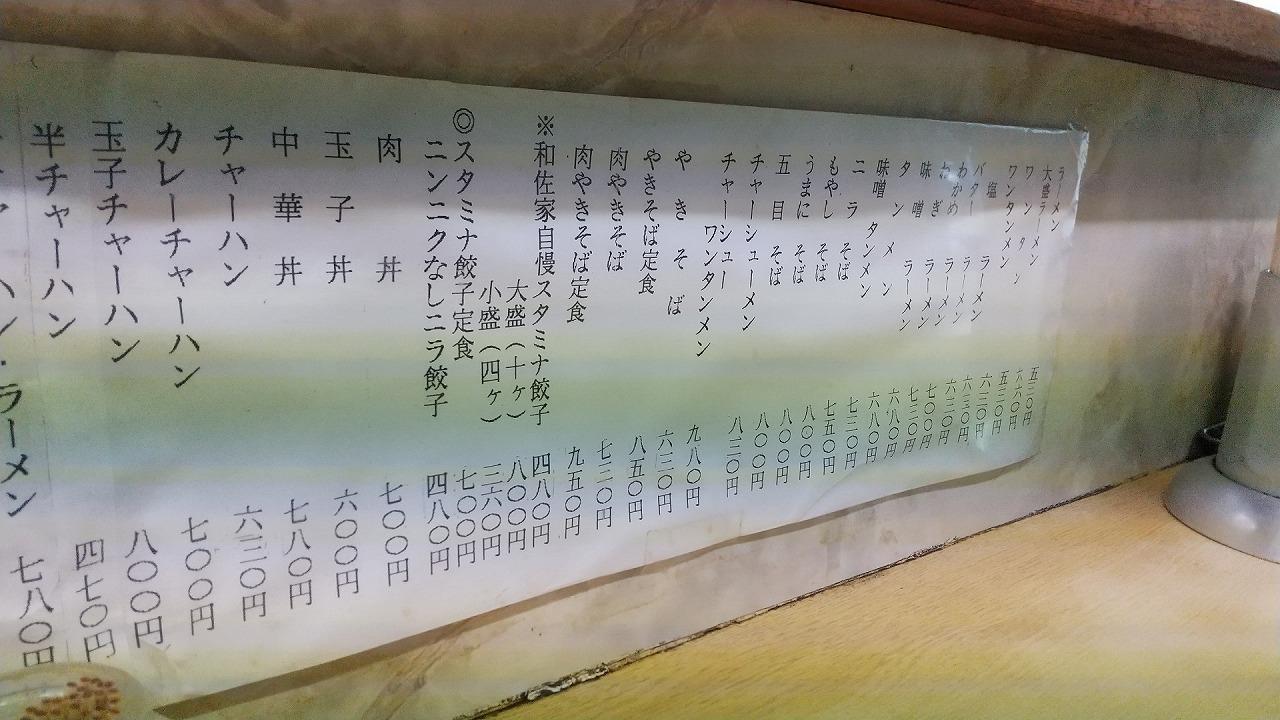 ラーメン 五三〇円
大盛ラーメン 六六〇円
ワンタン 五三〇円
ワンタンメン 六三〇円
塩ラーメン 六三〇円
バターラーメン 六三〇円
わかめラーメン 七〇〇円
ねぎラーメン 七三〇円
味噌ラーメン 六八〇円
タンメン 六八〇円
味噌タンメン 七三〇円
ニラそば 七五〇円
もやしそば 八〇〇円
うまにそば 八〇〇円
五目そば 八〇〇円
チャーシューメン 八三〇円
チャーシューワンタンメン 九八〇円
やきそば 六三〇円
やきそば定食 八五〇円
肉やきそば 七三〇円
肉やきそば定食 九五〇円
※和佐家自慢スタミナ餃子 四八〇円
大盛(十ヶ) 八〇〇円
小盛(四ヶ) 三六〇円
◎スタミナ餃子定食 七〇〇円
ニンニクなしニラ餃子 四八〇円
肉丼 七〇〇円
玉子丼 六〇〇円
中華丼 七八〇円
チャーハン 六三〇円
カレーチャーハン 七〇〇円
玉子チャーハン 八〇〇円
半チャーハン 四七〇円
ハン・ラーメン 七八〇円